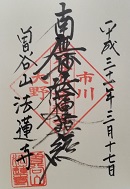 平成三十一年三月十七日
南無妙法蓮華経
市川
大野
曽谷山法蓮寺